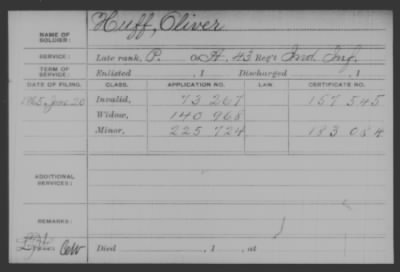 NAME OF SOLDIER: Huff, Oliver
SERVICE: Late rank, P. Co A, 43 Reg't Ind. Inf.
TERM OF SERVICE: Enlisted , 1 Discharged , 1
DATE OF FILING. CLASS. APPLICATION NO. LAW. CERTIFICATE NO.
1865, June 20 Invalid, 73 267 157 545
Widow, 140 968
Minor, 225 724 183 084
ADDITIONAL SERVICES:
REMARKS:
Died , 1 , at